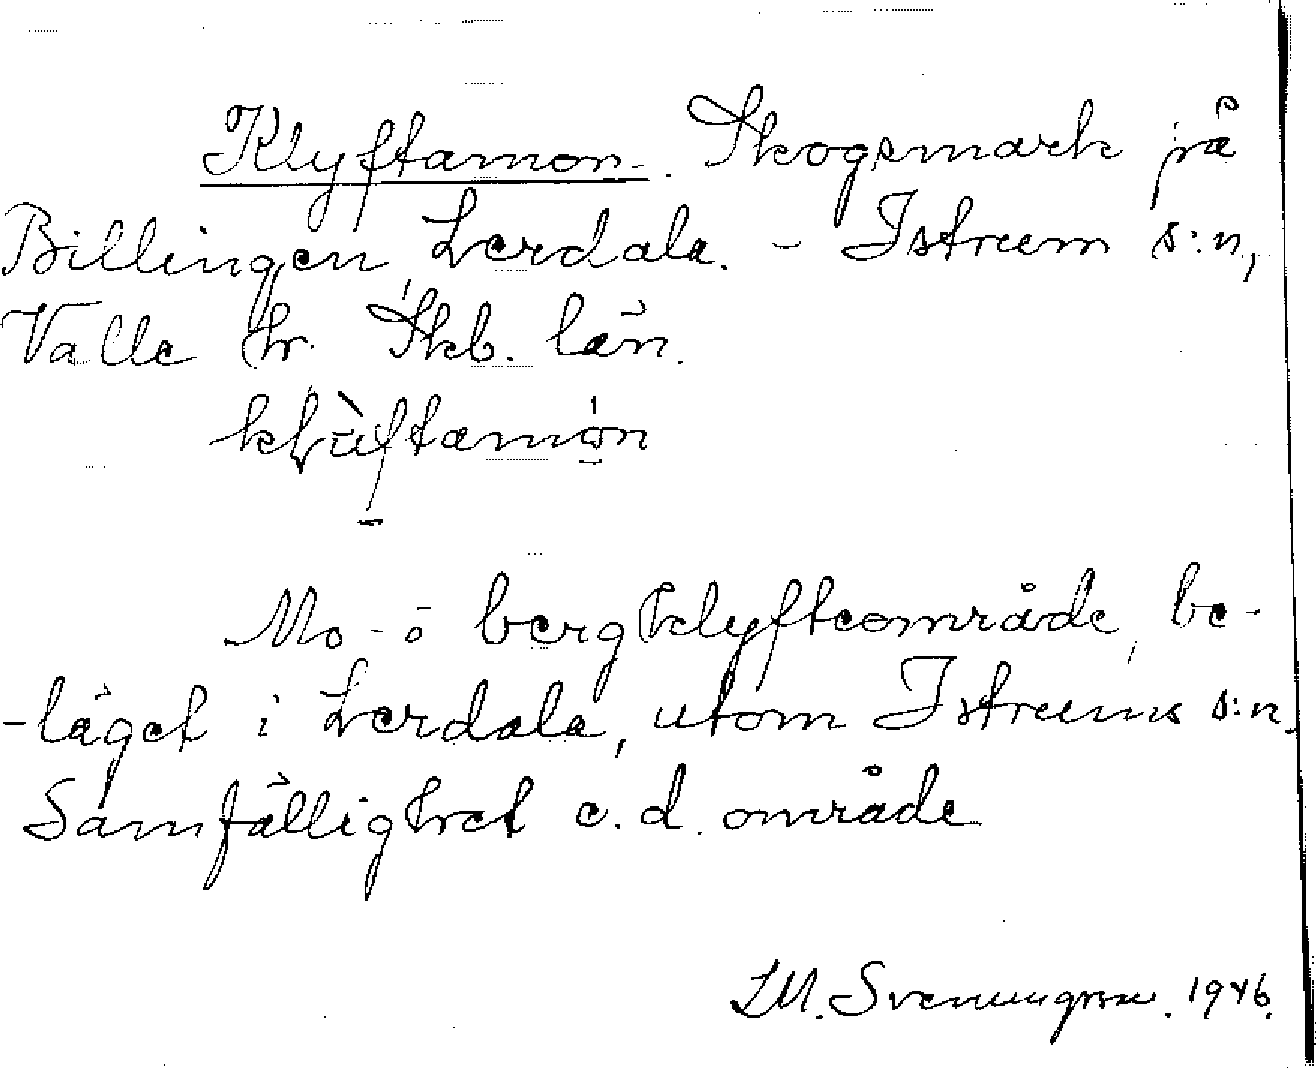 Klyftamon. Skogsmark på
Billingen, Lerdala. - Istrum s:n,
Valle hr. Skb. län.
Mo- o bergklyfteområde, be-
-läget i Lerdala, utom Istrums s:n.
Samfällighet o. d. område
1946.